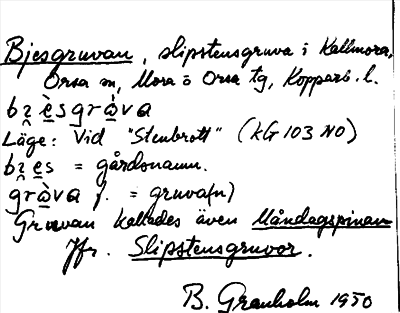 Bjesgruvan, slipstensgruva i Kallmora,
Orsa sn, Mora o Orsa tg, Kopparb. l.
bẓẹ̀sgrà̤va
Läge: Vid "Stenbrott" (KG 103 NO)
bẓẹs = gårdsnamn.
grà̤va f. = gruva(n)
Gruvan kallades även Måndagspinan
Jfr. Slipstensgruvor.
B. Granholm 1950